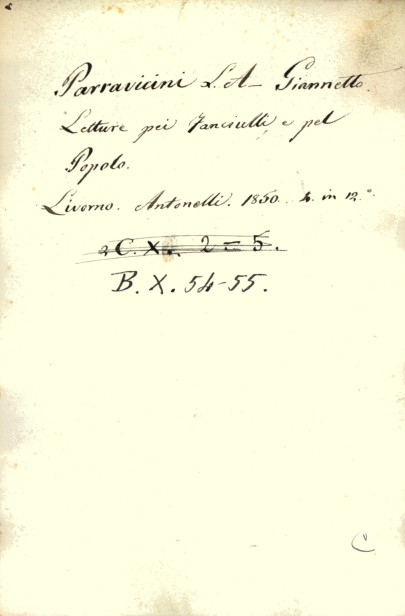 Parravicini L. A — Giannetto.
Letture pei Fanciulli, e pel
Popolo.
Livorno. Antonelli. 1850. 4. in 12.°
2 C. X. 2 = 5.
B. X. 54-55.
C